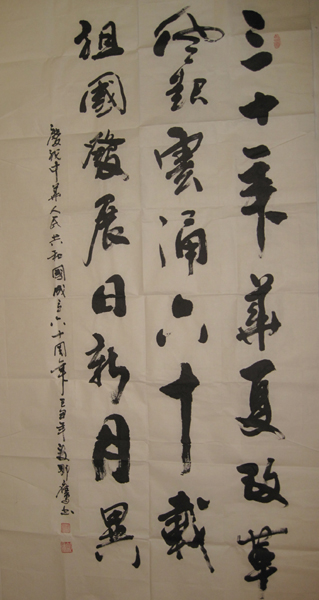 三十年華夏改革
風起雲涌六十載
祖國發展日新月異
慶祝中華人民共和國成立六十周年己丑年